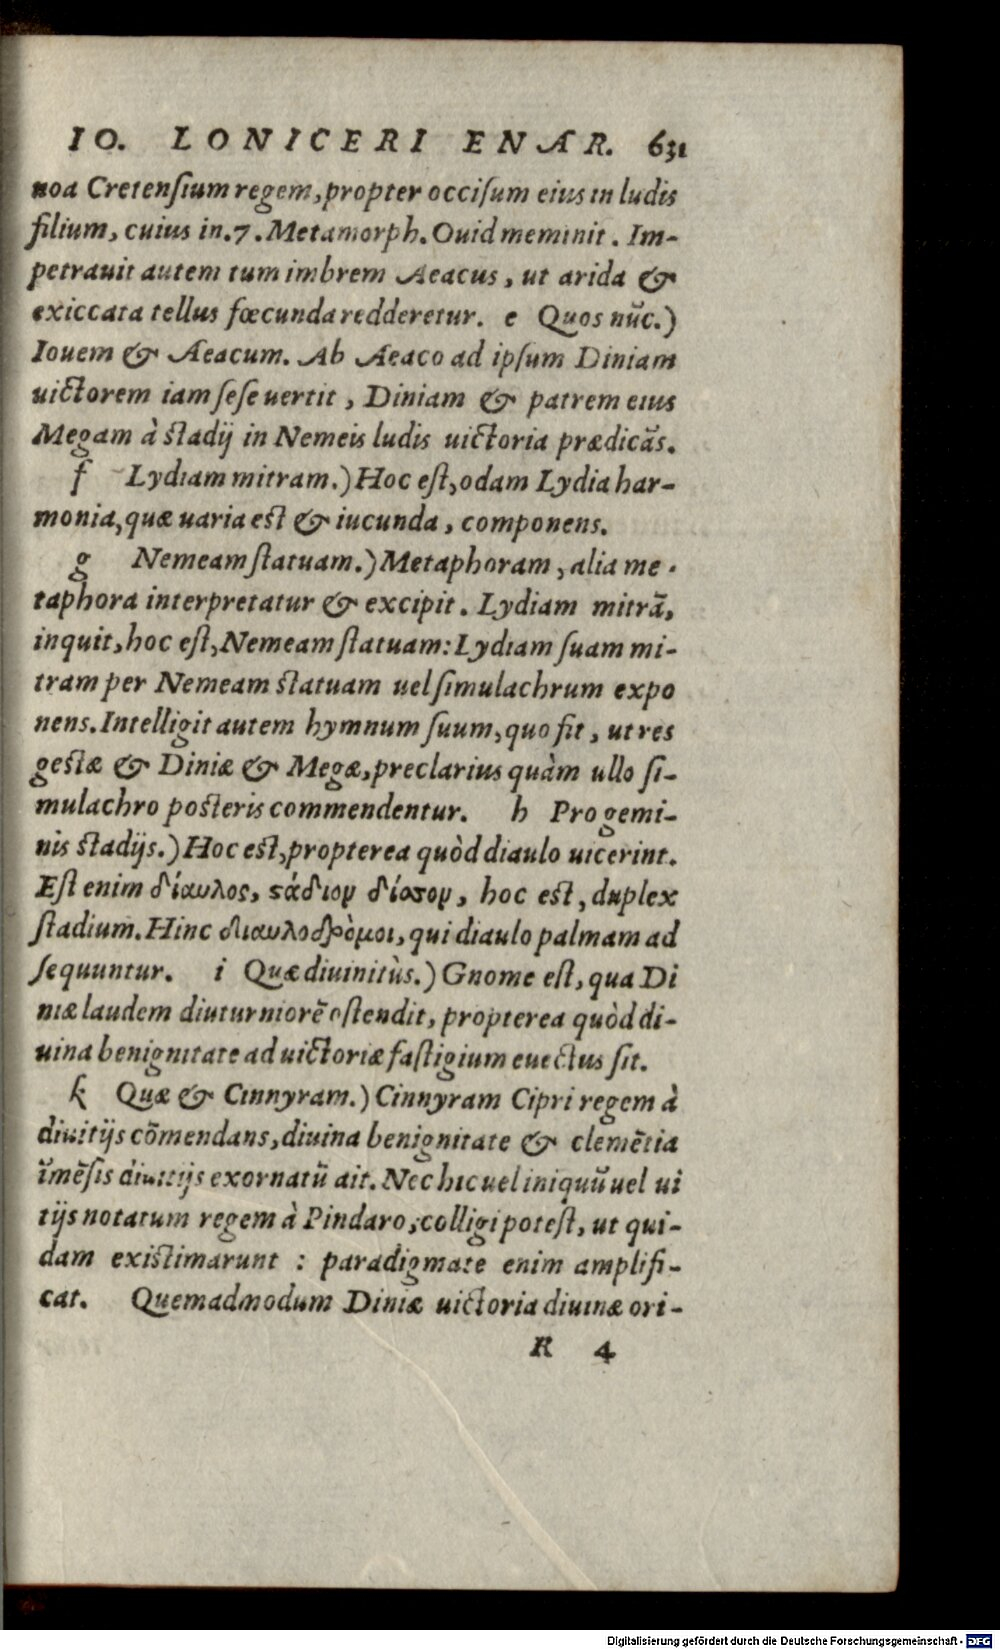 IO. LONICERI ENAR. 631
noa Cretensium regem, propter occisum eius in ludis
filium, cuius in.7. Metamorph. Ouid meminit. Im-
petrauit autem tum imbrem Aeacus, ut arida &
exiccata tellus fœcunda redderetur. e Quos nũc.)
Iouem & Aeacum. Ab Aeaco ad ipsum Diniam
uictorem iam sese uertit, Diniam & patrem eius
Megam à stadij in Nemeis ludis uictoria prædicãs.
f Lydiam mitram.) Hoc est, odam Lydia har-
monia, quæ uaria est & iucunda, componens.
g Nemeam statuam.) Metaphoram, alia me-
taphora interpretatur & excipit. Lydiam mitrã,
inquit, hoc est, Nemeam statuam: Lydiam suam mi-
tram per Nemeam statuam uel simulachrum expo
nens. Intelligit autem hymnum suum, quo fit, ut res
gestæ & Diniæ & Megæ, preclarius quàm ullo si-
mulachro posteris commendentur. h Pro gemi-
nis stadijs.) Hoc est, propterea quòd diaulo uicerint.
Est enim δίαυλος, ϛάδιον δίσσον, hoc est, duplex
stadium. Hinc διαυλοδρόμοι, qui diaulo palmam ad
sequuntur. i Quæ diuinitùs.) Gnome est, qua Di
niæ laudem diuturniorẽ ostendit, propterea quòd di-
uina benignitate ad uictoriæ fastigium euectus sit.
k Quæ & Cinnyram.) Cinnyram Cipri regem à
diuitijs cõmendans, diuina benignitate & clemẽtia
ĩmẽsis diuitijs exornatũ ait. Nec hic uel iniquũ uel ui
tijs notatum regem à Pindaro, colligi potest, ut qui-
dam existimarunt : paradigmate enim amplifi-
cat. Quemadmodum Diniæ uictoria diuinæ ori-
R 4
Digitalisierung gefördert durch die Deutsche Forschungsgemeinschaft - DFG